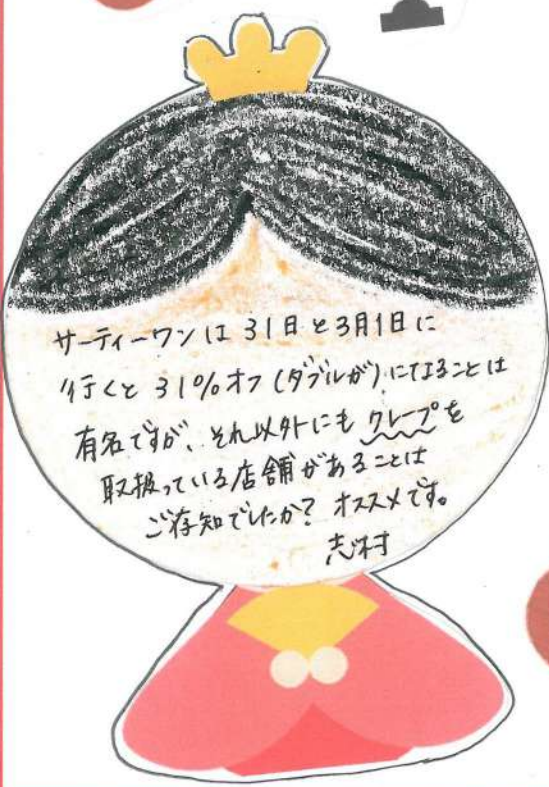 サーティーワンは31日と3月1日に
行くと31%オフ(ダブルが)になることは
有名ですが、それ以外にもクレープを
取扱っている店舗があることは
ご存知でしたか? オススメです。
志村